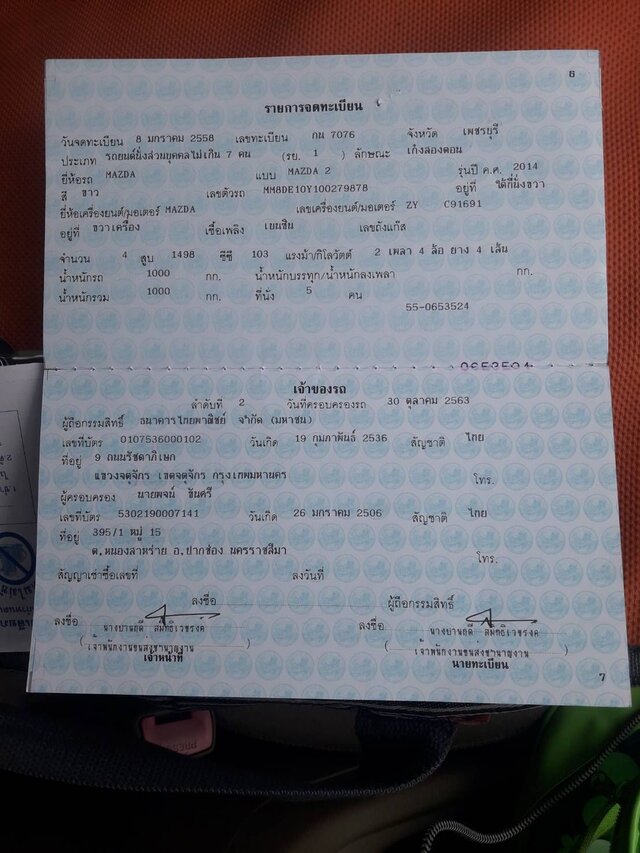 6
รายการจดทะเบียน
วันจดทะเบียน 8 มกราคม 2558 เลขทะเบียน กน 7076 จังหวัด เพชรบุรี
ประเภท รถยนต์นั่งส่วนบุคคลไม่เกิน 7 คน (รย. 1 ) ลักษณะ เก๋งสองตอน
ยี่ห้อรถ MAZDA แบบ MAZDA 2 รุ่นปี ค.ศ. 2014
สี ขาว เลขตัวรถ MM8DE10Y100279878 อยู่ที่ ใต้ที่นั่งขวา
ยี่ห้อเครื่องยนต์/มอเตอร์ MAZDA เลขเครื่องยนต์/มอเตอร์ ZY C91691
อยู่ที่ ขวาเครื่อง เชื้อเพลิง เบนซิน เลขถังแก๊ส
จำนวน 4 สูบ 1498 ซีซี 103 แรงม้า/กิโลวัตต์ 2 เพลา 4 ล้อ ยาง 4 เส้น
น้ำหนักรถ 1000 กก. น้ำหนักบรรทุก/น้ำหนักลงเพลา กก.
น้ำหนักรวม 1000 กก. ที่นั่ง 5 คน
55-0653524
เจ้าของรถ
ลำดับที่ 2 วันที่ครอบครองรถ 30 ตุลาคม 2563
ผู้ถือกรรมสิทธิ์ ธนาคารไทยพาณิชย์ จำกัด (มหาชน)
เลขที่บัตร 0107536000102 วันเกิด 19 กุมภาพันธ์ 2536 สัญชาติ ไทย
ที่อยู่ 9 ถนนรัชดาภิเษก
แขวงจตุจักร เขตจตุจักร กรุงเทพมหานคร โทร.
ผู้ครอบครอง นายพจน์ ขันศรี
เลขที่บัตร 5302190007141 วันเกิด 26 มกราคม 2506 สัญชาติ ไทย
ที่อยู่ 395/1 หมู่ 15
ต.หนองสาหร่าย อ.ปากช่อง นครราชสีมา โทร.
สัญญาเช่าซื้อเลขที่ ลงวันที่
ลงชื่อ ผู้ถือกรรมสิทธิ์
ลงชื่อ ลงชื่อ
(เจ้าพนักงานขนส่งชำนาญงาน) (เจ้าพนักงานขนส่งชำนาญงาน)
เจ้าหน้าที่ นายทะเบียน
7
PRESS